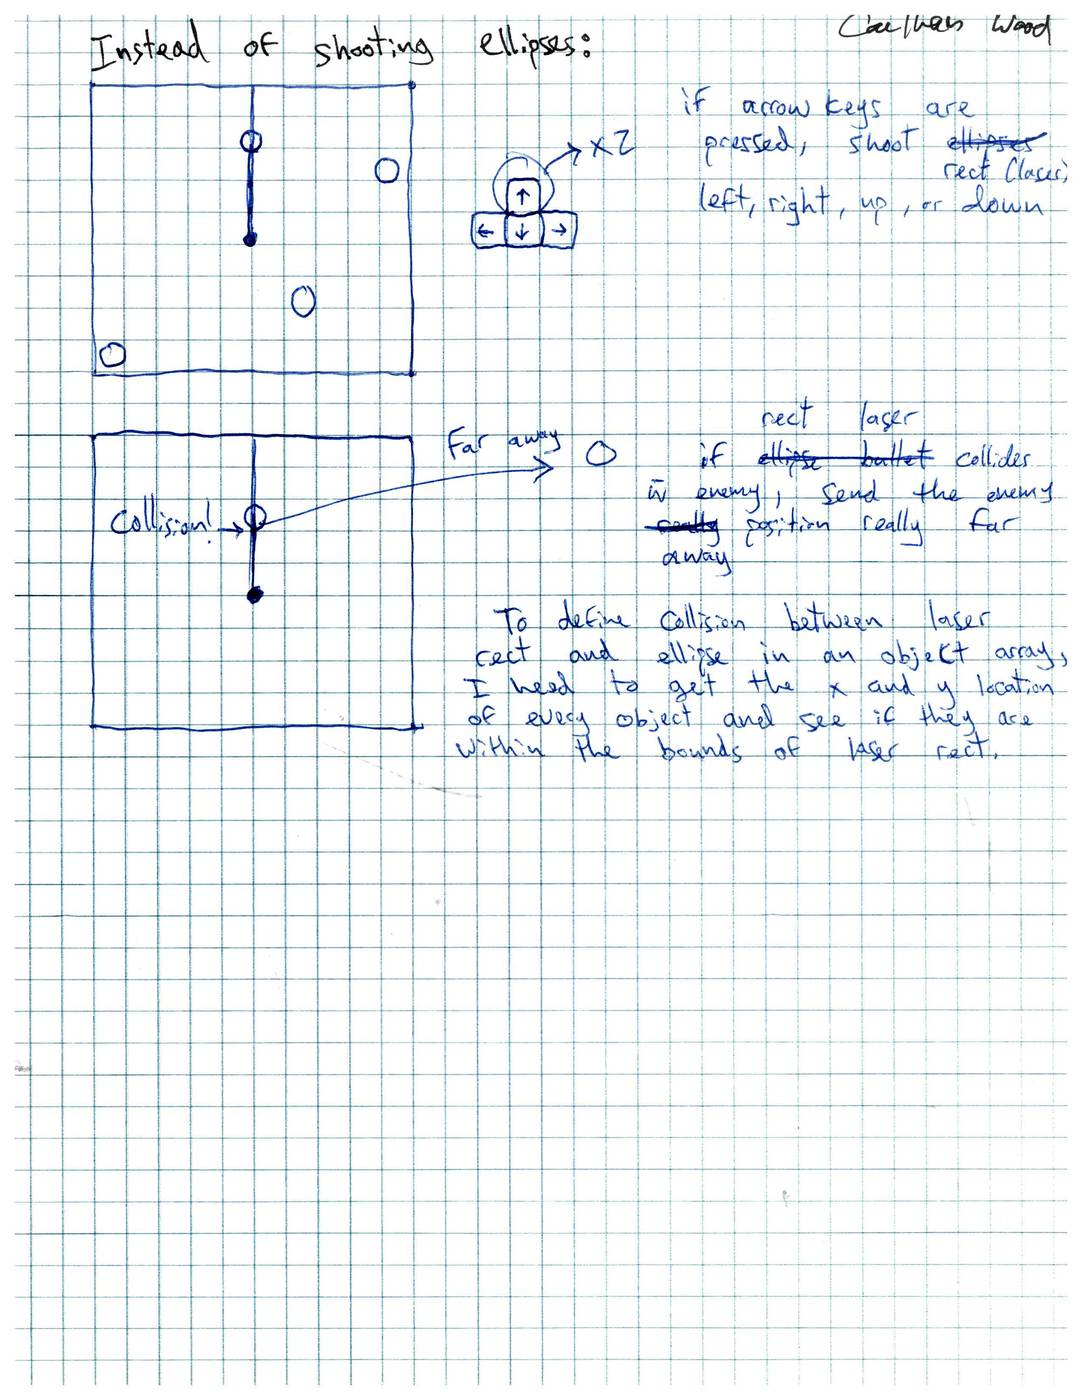 Wood
Instead of shooting ellipses:
if arrow keys are
pressed, shoot ellipses
rect (laser)
left, right, up, or down
x2
↑
← ↓ →
rect laser
Far away
if ellipse bullet collides
w enemy, send the enemy
Collision!
really position really far
away
To define collision between laser
rect and ellipse in an object array,
I need to get the x and y location
of every object and see if they are
within the bounds of laser rect.